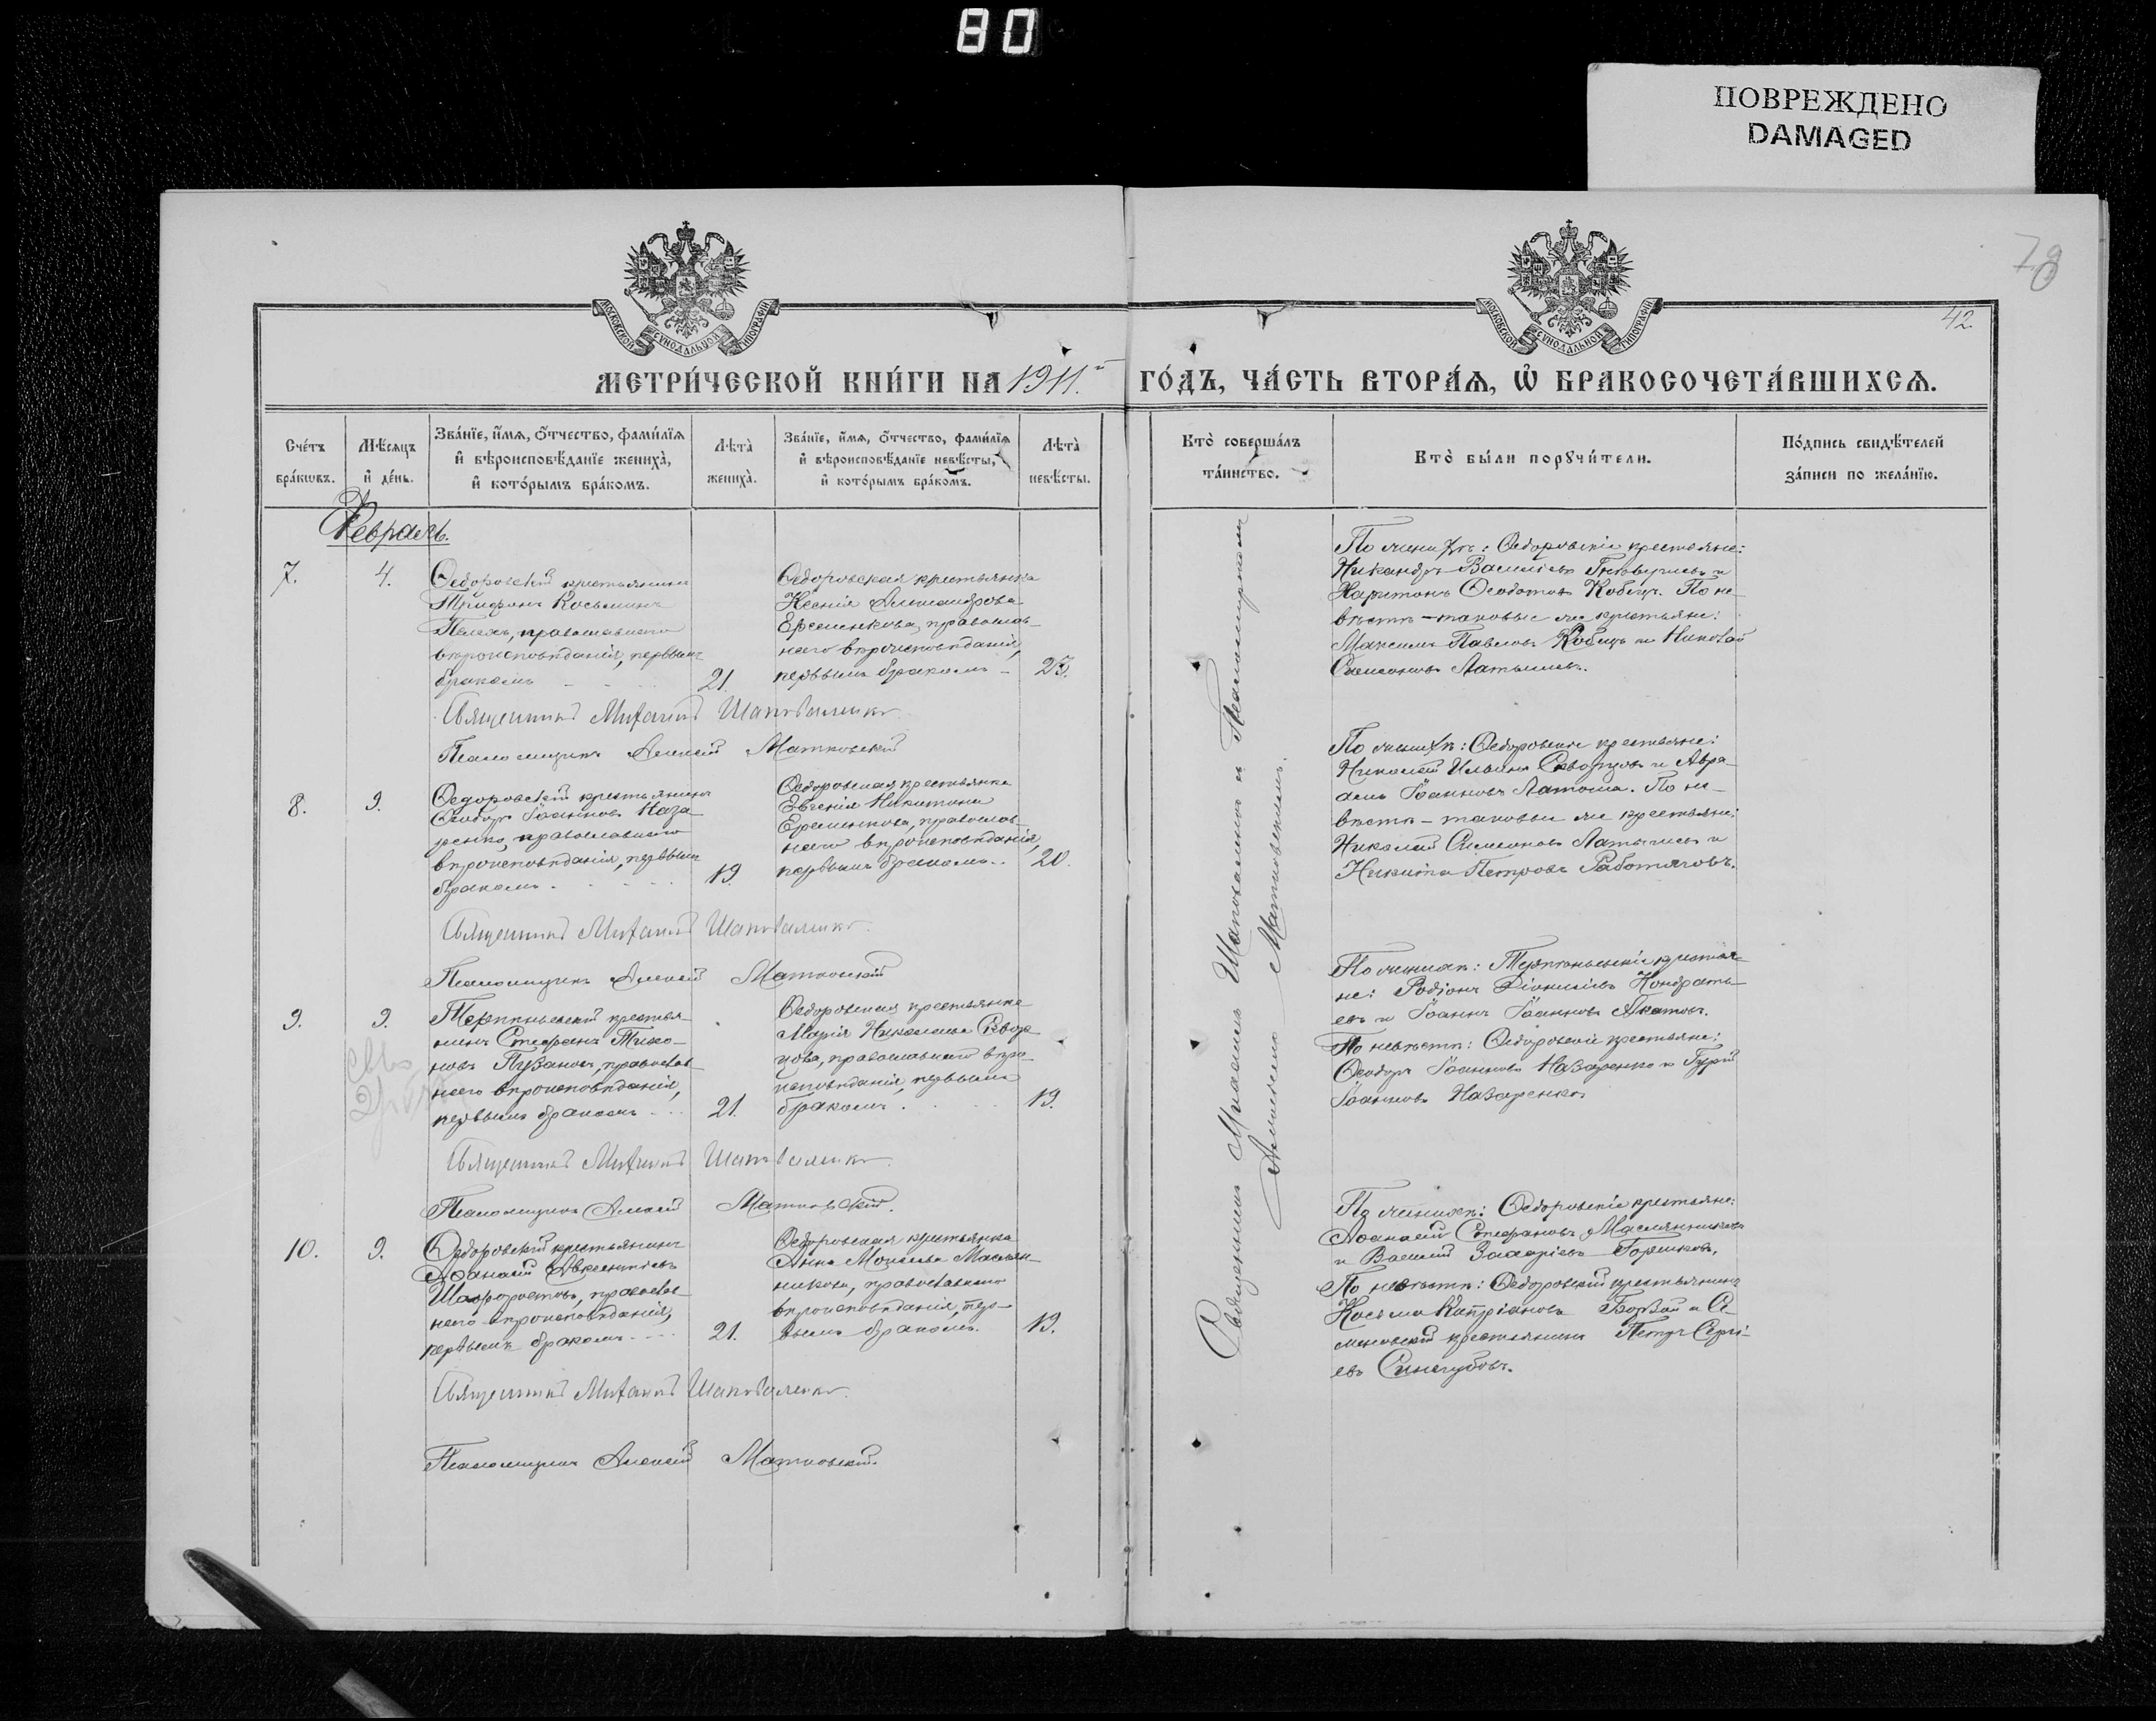 80
ПОВРЕЖДЕНО
DAMAGED
78
42
МОСКОВСКОЙ СѴНОДАЛЬНОЙ ТИПОГРАФІИ
МОСКОВСКОЙ СѴНОДАЛЬНОЙ ТИПОГРАФІИ
МЕТРИ́ЧЕСКОЙ КНИ́ГИ НА 1911 й ГО́ДЪ, ЧА́СТЬ ВТОРА́Ѧ, Ѽ БРАКОСОЧЕТА́ВШИХСѦ.
Сче́тъ бра́кѡвъ.
Мѣ́сѧцъ и҆ де́нь.
Зва́нїе, и҆́мѧ, ѻ҆́тчество, фами́лїѧ и҆ вѣроисповѣ́данїе жениха̀, и҆ кото́рымъ бра́комъ.
Лѣта̀ жениха̀.
Зва́нїе, и҆́мѧ, ѻ҆́тчество, фами́лїѧ и҆ вѣроисповѣ́данїе невѣ́сты, и҆ кото́рымъ бра́комъ.
Лѣта̀ невѣ́сты.
Кто̀ соверша́лъ та́инство.
Кто̀ бы́ли порꙋчи́тели.
По́дпись свидѣ́телей за́писи по жела́нїю.
Февраль.
7.
4.
Ѳедоровскій крестьянинъ
Трифонъ Косьминъ
православнаго
вѣроисповѣданія, первымъ
бракомъ
21.
Ѳедоровская крестьянка
Ксенія Александрова
Еременкова, православ-
наго вѣроисповѣданія,
первымъ бракомъ
23.
По жениху: Ѳедоровскіе крестьяне:
Никандръ Васильевъ и
Харитонъ Ѳеодотовъ Кобецъ. По не-
вѣстѣ - таковые же крестьяне:
Максимъ Павловъ Кобецъ и Николай
Симеоновъ Латышевъ.
Священникъ Михаилъ Шаповаленко.
Псаломщикъ Алексій Матковскій
8.
9.
Ѳедоровскій крестьянинъ
Ѳеодоръ Іоанновъ Наза-
ренко, православнаго
вѣроисповѣданія, первымъ
бракомъ
19.
Ѳедоровская крестьянка
Евгенія Никитина
Еременкова, православ-
наго вѣроисповѣданія,
первымъ бракомъ
20.
По жениху: Ѳедоровскіе крестьяне:
Николай Ильинъ Скворцовъ и Авра-
амъ Іоанновъ Латоша. По не-
вѣстѣ - таковые же крестьяне:
Николай Симеоновъ Латышевъ и
Никита Петровъ Работяговъ.
Священникъ Михаилъ Шаповаленко.
Псаломщикъ Алексій Матковскій
9.
9.
Терпѣньевскій крестья-
нинъ Стефанъ Тихо-
новъ Пузановъ, православ-
наго вѣроисповѣданія,
первымъ бракомъ
21.
Ѳедоровская крестьянка
Марія Николаева Сквор-
цова, православнаго вѣро-
исповѣданія, первымъ
бракомъ
19.
По женихѣ: Терпѣньевскіе крестья-
не: Родіонъ Діонисіевъ Кондрать-
евъ и Іоаннъ Іоанновъ Акатовъ.
По невѣстѣ: Ѳедоровскіе крестьяне:
Ѳеодоръ Іоанновъ Назаренко и Гурій
Іоанновъ Назаренко
Священникъ Михаилъ Шаповаленко.
Псаломщикъ Алексій Матковскій.
10.
9.
Ѳедоровскій крестьянинъ
Аѳанасій Авксентіевъ
Шафоростовъ, православ-
наго вѣроисповѣданія,
первымъ бракомъ
21.
Ѳедоровская крестьянка
Анна Моисеева Маслян-
никова, православнаго
вѣроисповѣданія, пер-
вымъ бракомъ.
19.
По женихѣ: Ѳедоровскіе крестьяне:
Аѳанасій Стефановъ Маслянниковъ
и Василій Захаріевъ Горшковъ.
По невѣстѣ: Ѳедоровскій крестьянинъ
Косьма Кипріановъ Борзой и Се-
меновскій крестьянинъ Петръ Сергі-
евъ Синегубовъ.
Священникъ Михаилъ Шаповаленко.
Псаломщикъ Алексій Матковскій.
Священникъ Михаилъ Шаповаленко и Псаломщикомъ
Алексіемъ Матковскимъ.